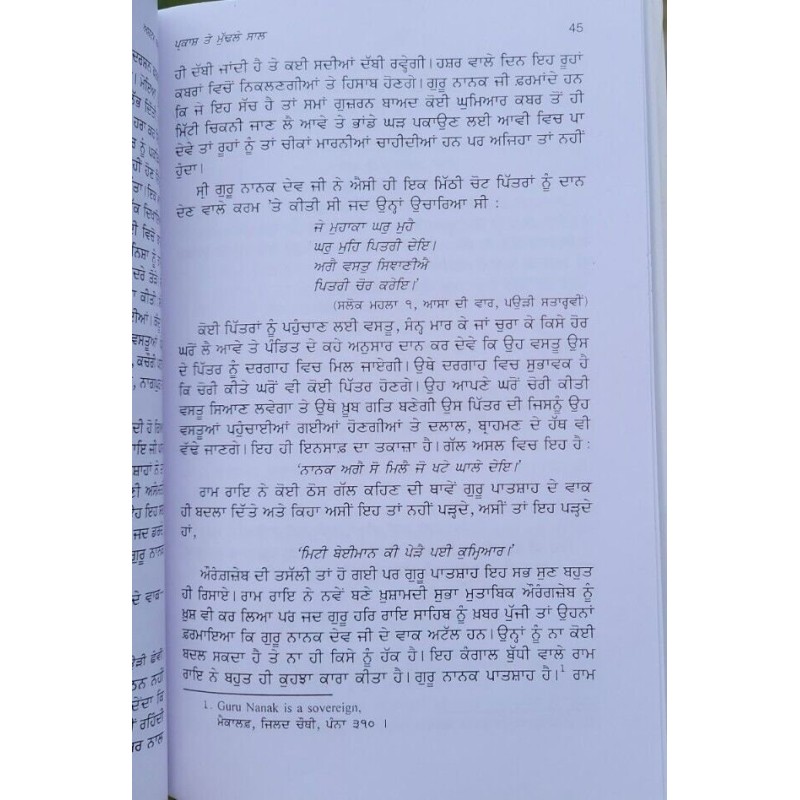 ਪ੍ਰਕਾਸ਼ ਤੇ ਮੁੱਢਲੇ ਸਾਲ 45
ਹੀ ਦੱਬੀ ਜਾਂਦੀ ਹੈ ਤੇ ਕਈ ਸਦੀਆਂ ਦੱਬੀ ਰਵ੍ਹੇਗੀ। ਹਸ਼ਰ ਵਾਲੇ ਦਿਨ ਇਹ ਰੂਹਾਂ
ਕਬਰਾਂ ਵਿਚੋਂ ਨਿਕਲਣਗੀਆਂ ਤੇ ਹਿਸਾਬ ਹੋਣਗੇ। ਗੁਰੂ ਨਾਨਕ ਜੀ ਫ਼ਰਮਾਂਦੇ ਹਨ
ਕਿ ਜੇ ਇਹ ਸੱਚ ਹੈ ਤਾਂ ਸਮਾਂ ਗੁਜ਼ਰਨ ਬਾਅਦ ਕੋਈ ਘੁਮਿਆਰ ਕਬਰ ਤੋਂ ਹੀ
ਮਿੱਟੀ ਚਿਕਨੀ ਜਾਣ ਲੈ ਆਵੇ ਤੇ ਭਾਂਡੇ ਘੜ ਪਕਾਉਣ ਲਈ ਆਵੀ ਵਿਚ ਪਾ
ਦੇਵੇ ਤਾਂ ਰੂਹਾਂ ਨੂੰ ਤਾਂ ਚੀਕਾਂ ਮਾਰਨੀਆਂ ਚਾਹੀਦੀਆਂ ਹਨ ਪਰ ਅਜਿਹਾ ਤਾਂ ਨਹੀਂ
ਹੁੰਦਾ।
ਸ੍ਰੀ ਗੁਰੂ ਨਾਨਕ ਦੇਵ ਜੀ ਨੇ ਐਸੀ ਹੀ ਇਕ ਮਿੱਠੀ ਚੋਟ ਪਿੱਤਰਾਂ ਨੂੰ ਦਾਨ
ਦੇਣ ਵਾਲੇ ਕਰਮ 'ਤੇ ਕੀਤੀ ਸੀ ਜਦ ਉਨ੍ਹਾਂ ਉਚਾਰਿਆ ਸੀ :
ਜੇ ਮੁਹਾਕਾ ਘਰੁ ਮੁਹੈ
ਘਰੁ ਮੁਹਿ ਪਿਤਰੀ ਦੇਇ।
ਅਗੈ ਵਸਤੁ ਸਿਞਾਣੀਐ
ਪਿਤਰੀ ਚੋਰ ਕਰੇਇ।'
(ਸਲੋਕ ਮਹਲਾ ੧, ਆਸਾ ਦੀ ਵਾਰ, ਪਉੜੀ ਸਤਾਰ੍ਹਵੀਂ)
ਕੋਈ ਪਿੱਤਰਾਂ ਨੂੰ ਪਹੁੰਚਾਣ ਲਈ ਵਸਤੂ, ਸੰਨ੍ਹ ਮਾਰ ਕੇ ਜਾਂ ਚੁਰਾ ਕੇ ਕਿਸੇ ਹੋਰ
ਘਰੋਂ ਲੈ ਆਵੇ ਤੇ ਪੰਡਿਤ ਦੇ ਕਹੇ ਅਨੁਸਾਰ ਦਾਨ ਕਰ ਦੇਵੇ ਕਿ ਉਹ ਵਸਤੂ ਉਸ
ਦੇ ਪਿੱਤਰ ਨੂੰ ਦਰਗਾਹ ਵਿਚ ਮਿਲ ਜਾਏਗੀ। ਉਥੇ ਦਰਗਾਹ ਵਿਚ ਸੁਭਾਵਕ ਹੈ
ਕਿ ਚੋਰੀ ਕੀਤੇ ਘਰੋਂ ਵੀ ਕੋਈ ਪਿੱਤਰ ਹੋਣਗੇ। ਉਹ ਆਪਣੇ ਘਰੋਂ ਚੋਰੀ ਕੀਤੀ
ਵਸਤੂ ਸਿਆਣ ਲਵੇਗਾ ਤੇ ਉਥੇ ਖ਼ੂਬ ਗਤਿ ਬਣੇਗੀ ਉਸ ਪਿੱਤਰ ਦੀ ਜਿਸਨੂੰ ਉਹ
ਵਸਤੂਆਂ ਪਹੁੰਚਾਈਆਂ ਗਈਆਂ ਹੋਣਗੀਆਂ ਤੇ ਦਲਾਲ, ਬ੍ਰਾਹਮਣ ਦੇ ਹੱਥ ਵੀ
ਵੱਢੇ ਜਾਣਗੇ। ਇਹ ਹੀ ਇਨਸਾਫ਼ ਦਾ ਤਕਾਜ਼ਾ ਹੈ। ਗੱਲ ਅਸਲ ਵਿਚ ਇਹ ਹੈ :
'ਨਾਨਕ ਅਗੈ ਸੋ ਮਿਲੈ ਜੋ ਖਟੇ ਘਾਲੇ ਦੇਇ।'
ਰਾਮ ਰਾਇ ਨੇ ਕੋਈ ਠੋਸ ਗੱਲ ਕਹਿਣ ਦੀ ਥਾਵੇਂ ਗੁਰੂ ਪਾਤਸ਼ਾਹ ਦੇ ਵਾਕ
ਹੀ ਬਦਲਾ ਦਿੱਤੇ ਅਤੇ ਕਿਹਾ ਅਸੀਂ ਇਹ ਤਾਂ ਨਹੀਂ ਪੜ੍ਹਦੇ, ਅਸੀਂ ਤਾਂ ਇਹ ਪੜ੍ਹਦੇ
ਹਾਂ,
'ਮਿਟੀ ਬੇਈਮਾਨ ਕੀ ਪੇੜੈ ਪਈ ਕੁਮ੍ਹਿਆਰ।'
ਔਰੰਗਜ਼ੇਬ ਦੀ ਤਸੱਲੀ ਤਾਂ ਹੋ ਗਈ ਪਰ ਗੁਰੂ ਪਾਤਸ਼ਾਹ ਇਹ ਸਭ ਸੁਣ ਬਹੁਤ
ਹੀ ਰਿਸਾਏ। ਰਾਮ ਰਾਇ ਨੇ ਨਵੇਂ ਬਣੇ ਖ਼ੁਸ਼ਾਮਦੀ ਸੁਭਾ ਮੁਤਾਬਿਕ ਔਰੰਗਜ਼ੇਬ ਨੂੰ
ਖ਼ੁਸ਼ ਵੀ ਕਰ ਲਿਆ ਪਰ ਜਦ ਗੁਰੂ ਹਰਿ ਰਾਇ ਸਾਹਿਬ ਨੂੰ ਖ਼ਬਰ ਪੁੱਜੀ ਤਾਂ ਉਹਨਾਂ
ਫ਼ਰਮਾਇਆ ਕਿ ਗੁਰੂ ਨਾਨਕ ਦੇਵ ਜੀ ਦੇ ਵਾਕ ਅਟੱਲ ਹਨ। ਉਨ੍ਹਾਂ ਨੂੰ ਨਾ ਕੋਈ
ਬਦਲ ਸਕਦਾ ਹੈ ਤੇ ਨਾ ਹੀ ਕਿਸੇ ਨੂੰ ਹੱਕ ਹੈ। ਇਹ ਕੰਗਾਲ ਬੁੱਧੀ ਵਾਲੇ ਰਾਮ
ਰਾਇ ਨੇ ਬਹੁਤ ਹੀ ਕੁਹਝਾ ਕਾਰਾ ਕੀਤਾ ਹੈ। ਗੁਰੂ ਨਾਨਕ ਪਾਤਸ਼ਾਹ ਹੈ।¹ ਰਾਮ
1. Guru Nanak is a sovereign,
ਮੈਕਾਲਫ਼, ਜਿਲਦ ਚੌਥੀ, ਪੰਨਾ ੩੧੦ ।